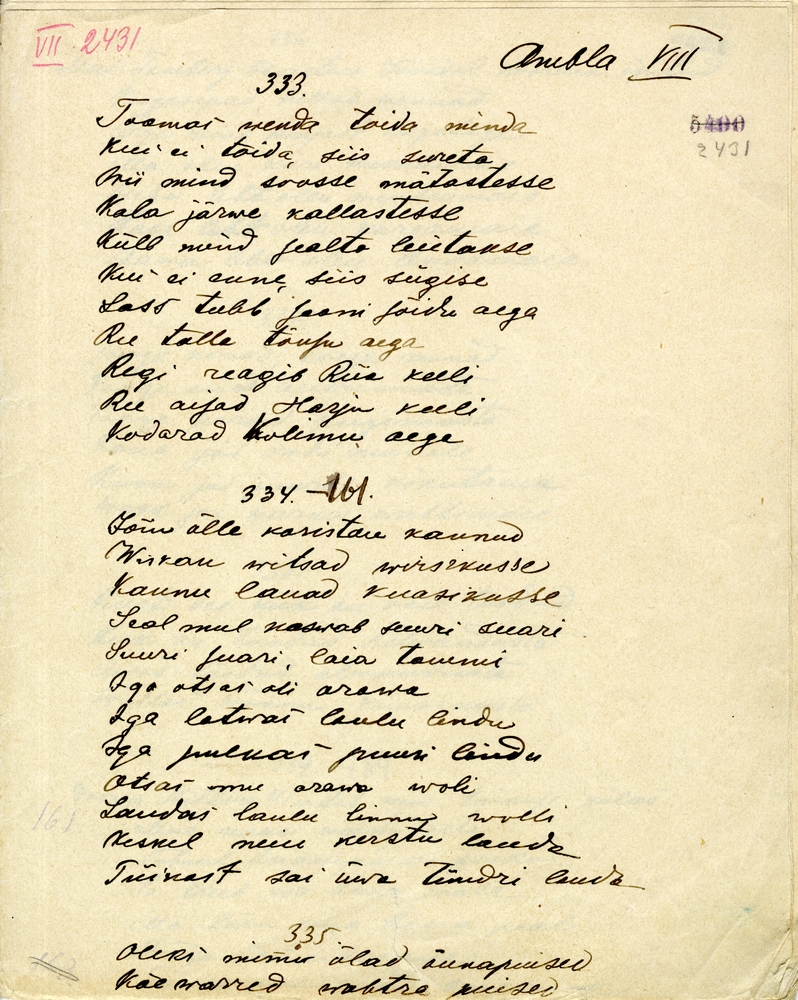 VII 2431
Ambla VIII
333.
5400
2431
Toomas wenda toida minda
Kui ei toida, siis sureta
Wii mind soosse mätastesse
Kala järwe kallastesse
Küll mind sealta leitakse
Kui ei enne, siis sügise
Lass tuleb jaani jõidu aega
Ree talla tõusu aega
Regi reagib Riia keeli
Ree aisad Harju keeli
Kodarad Kolimu aega
334. – 161.
Jõin ölle karistan kannud
Wiskan witsad wirsikusse
Kannu lauad kuusikusse
Seal mul kaswab suuri saari
Suuri saari, laia tammi
Iga otsas oli arawa
Iga latwas laulu lindu
Iga pulkas puuri lindu
Otsas mu arawa woli
161
Laudas laulu linnu wolli
Keskel neiu kerstu lauda
Tüikast sai üwa tündri lauda
335.
Oleks minu õlad õunapuused
Käewarred wahtra puused